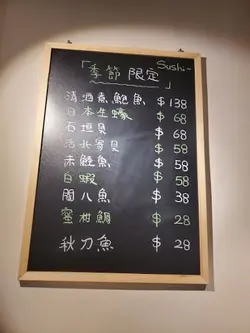 Sushi-
「季節限定」
清酒煮鮑魚 $138
日本生蠔 $68
石垣貝 $68
活北寄貝 $58
赤鯥魚 $58
白蝦 $58
間八魚 $38
蜜柑鯛 $28
秋刀魚 $28